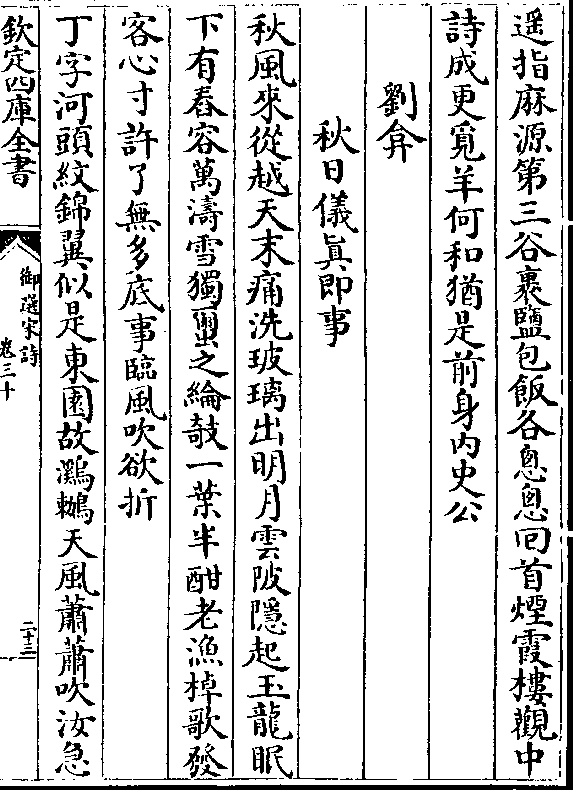 遥指麻源第三谷裹鹽包飯各息息回首煙霞樓觀中
詩成更覓羊何和猶是前身内史公
劉弇
秋日儀眞即事
秋風來從越天末痛洗玻璃出明月雲陂隱起玉龍眠
下有舂容萬濤雪獨蠒之綸攲一葉半酣老漁棹歌發
客心寸許了無多底事臨風吹欲折
丁字河頭紋錦翼似是東園故鸂鶒天風蕭蕭吹汝急
欽定四庫全書
御選宋詩
卷三十
二十三